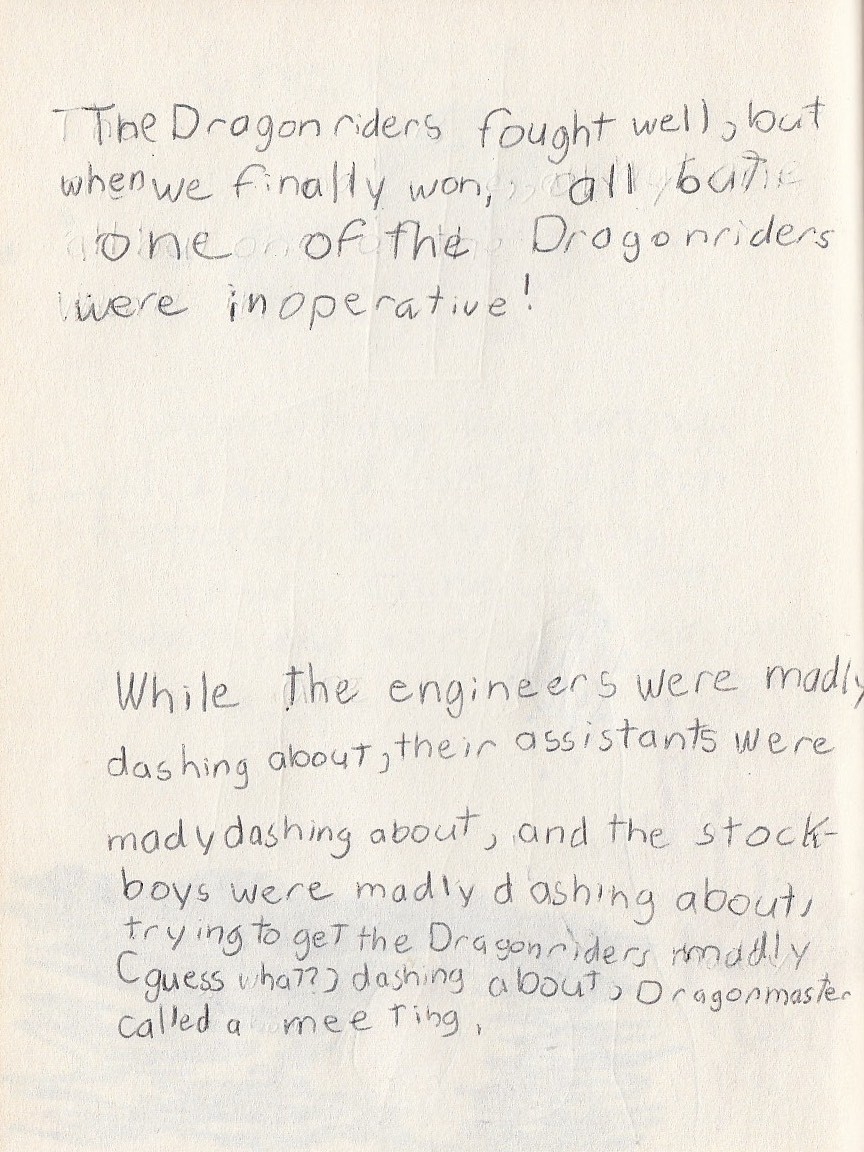 The Dragonriders fought well, but
when we finally won, all but
one of the Dragonriders
were inoperative!
While the engineers were madly
dashing about, their assistants were
mady dashing about, and the stock-
boys were madly dashing about,
trying to get the Dragonriders madly
(guess what??) dashing about, Dragonmaster
called a meeting.